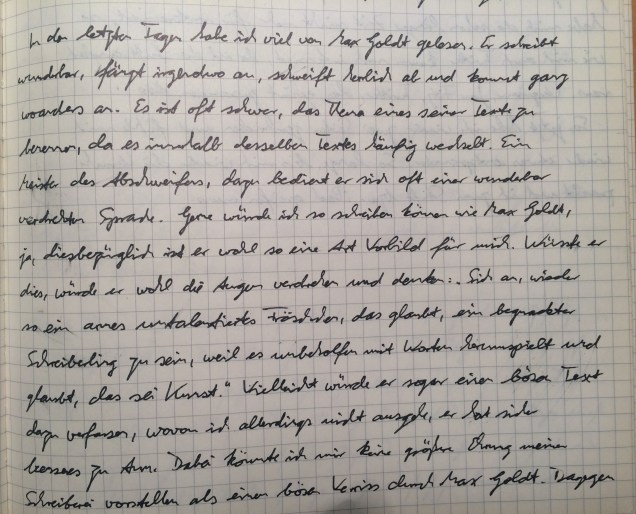 In den letzten Tagen habe ich viel von Max Goldt gelesen. Er schreibt
wunderbar, fängt irgendwo an, schweift herrlich ab und kommt ganz
woanders an. Es ist oft schwer, das Thema eines seiner Texte zu
benennen, da es innerhalb desselben Textes häufig wechselt. Ein
Meister des Abschweifens, dazu bedient er sich oft einer wunderbar
verdrehten Sprache. Gerne würde ich so schreiben können wie Max Goldt,
ja, diesbezüglich ist er wohl so eine Art Vorbild für mich. Wüsste er
dies, würde er wohl die Augen verdrehen und denken: „Sieh an, wieder
so ein armes untalentiertes Fröschchen, das glaubt, ein begnadeter
Schreiberling zu sein, weil es unbeholfen mit Worten herumspielt und
glaubt, das sei Kunst.“ Vielleicht würde er sogar einen bösen Text
dazu verfassen, wovon ich allerdings nicht ausgehe, er hat sicher
besseres zu tun. Dabei könnte ich mir keine größere Ehrung meiner
Schreiberei vorstellen als einen bösen Verriss durch Max Goldt. Dagegen